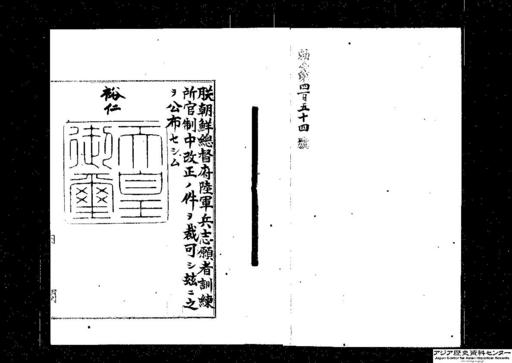 勅令第四百五十四號
朕朝鮮總督府陸軍兵志願者訓練
所官制中改正ノ件ヲ裁可シ玆ニ之
ヲ公布セシム
裕仁
天皇
御璽
アジア歴史資料センター
Japan Center for Asian Historical Records